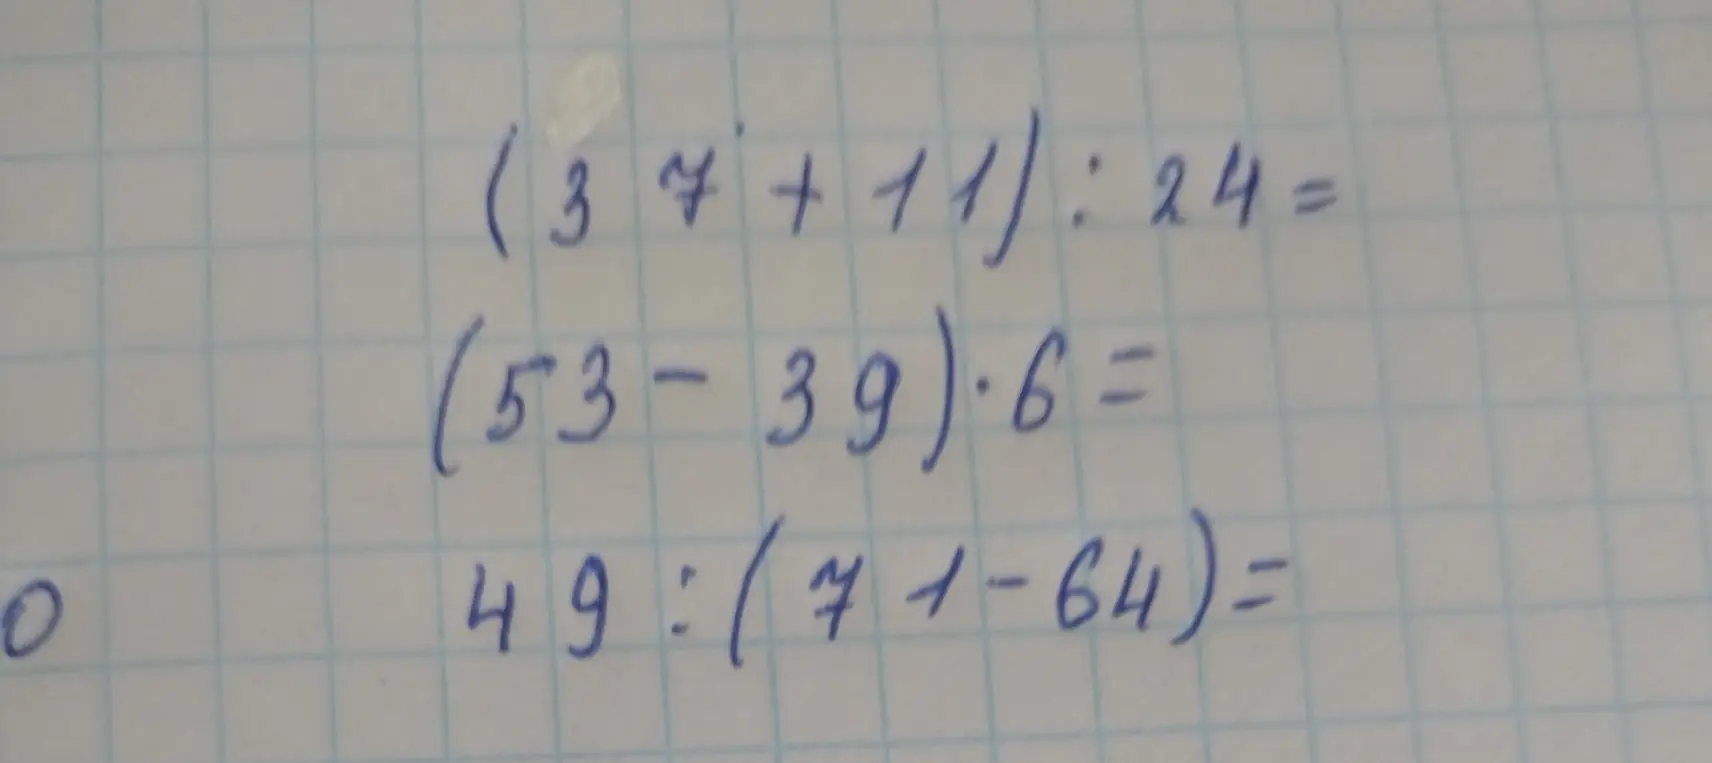 (37+11):24=
(53-39)·6=
0 49:(71-64)=